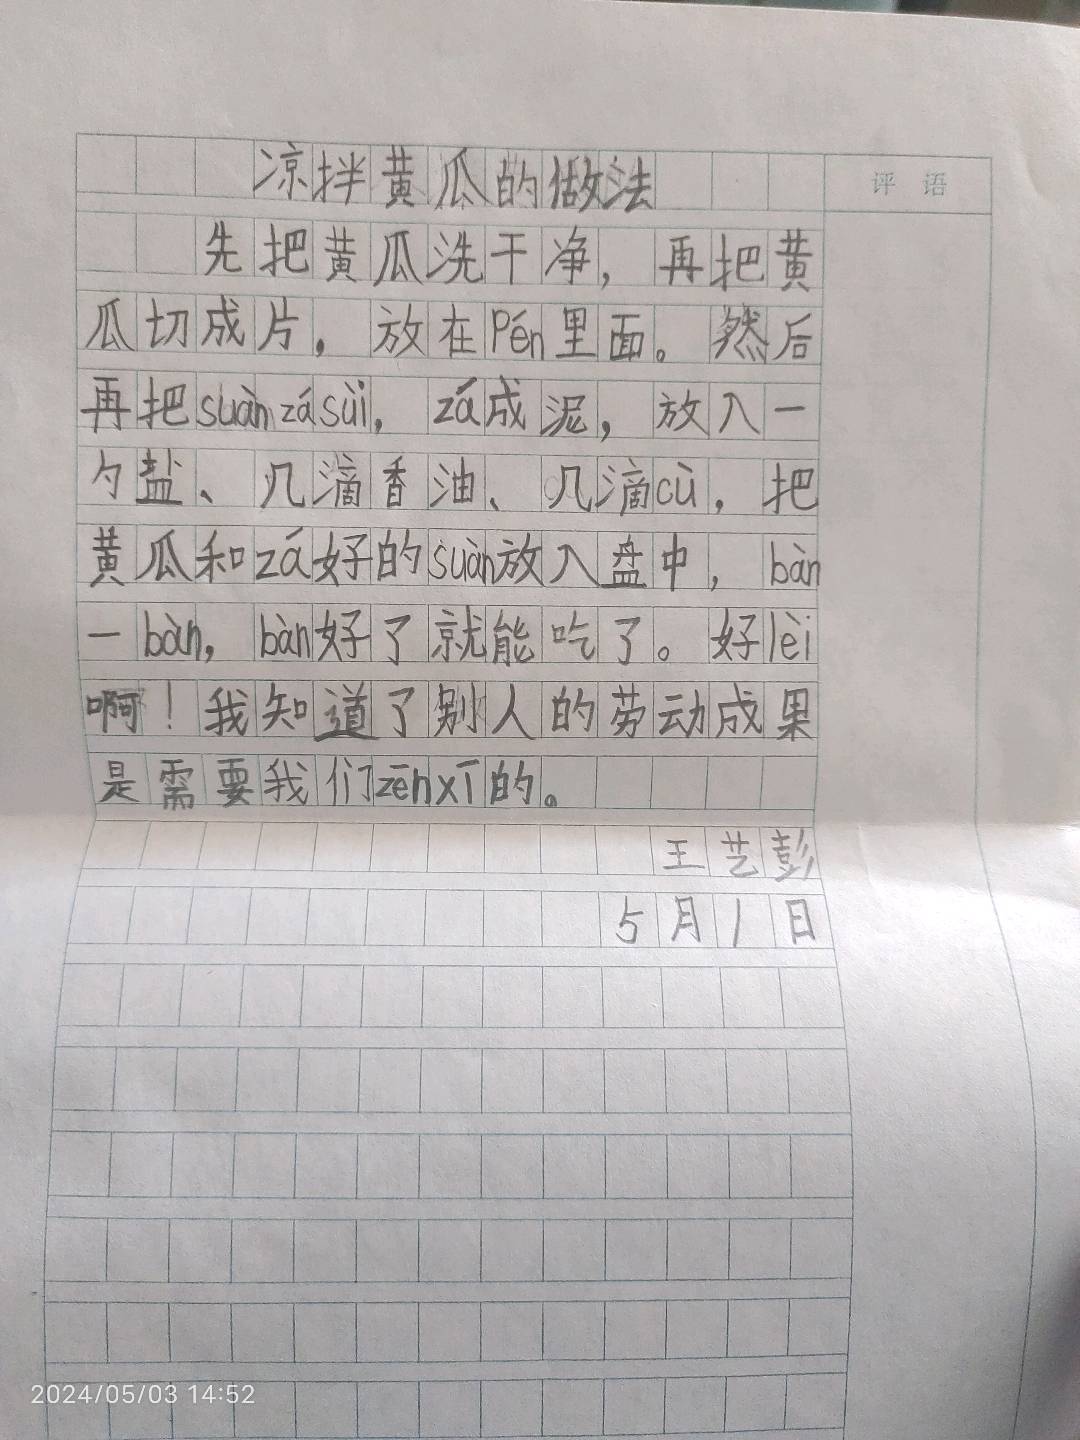 凉拌黄瓜的做法
评 语
先把黄瓜洗干净，再把黄
瓜切成片，放在pén里面。然后
再把suàn zá sùi，zá成泥，放入一
勺盐、几滴香油、几滴cù，把
黄瓜和zá好的suàn放入盘中，bàn
一bàn，bàn好了就能吃了。好lèi
啊！我知道了别人的劳动成果
是需要我们zēn xī的。
王艺彭
5月1日
2024/05/03 14:52